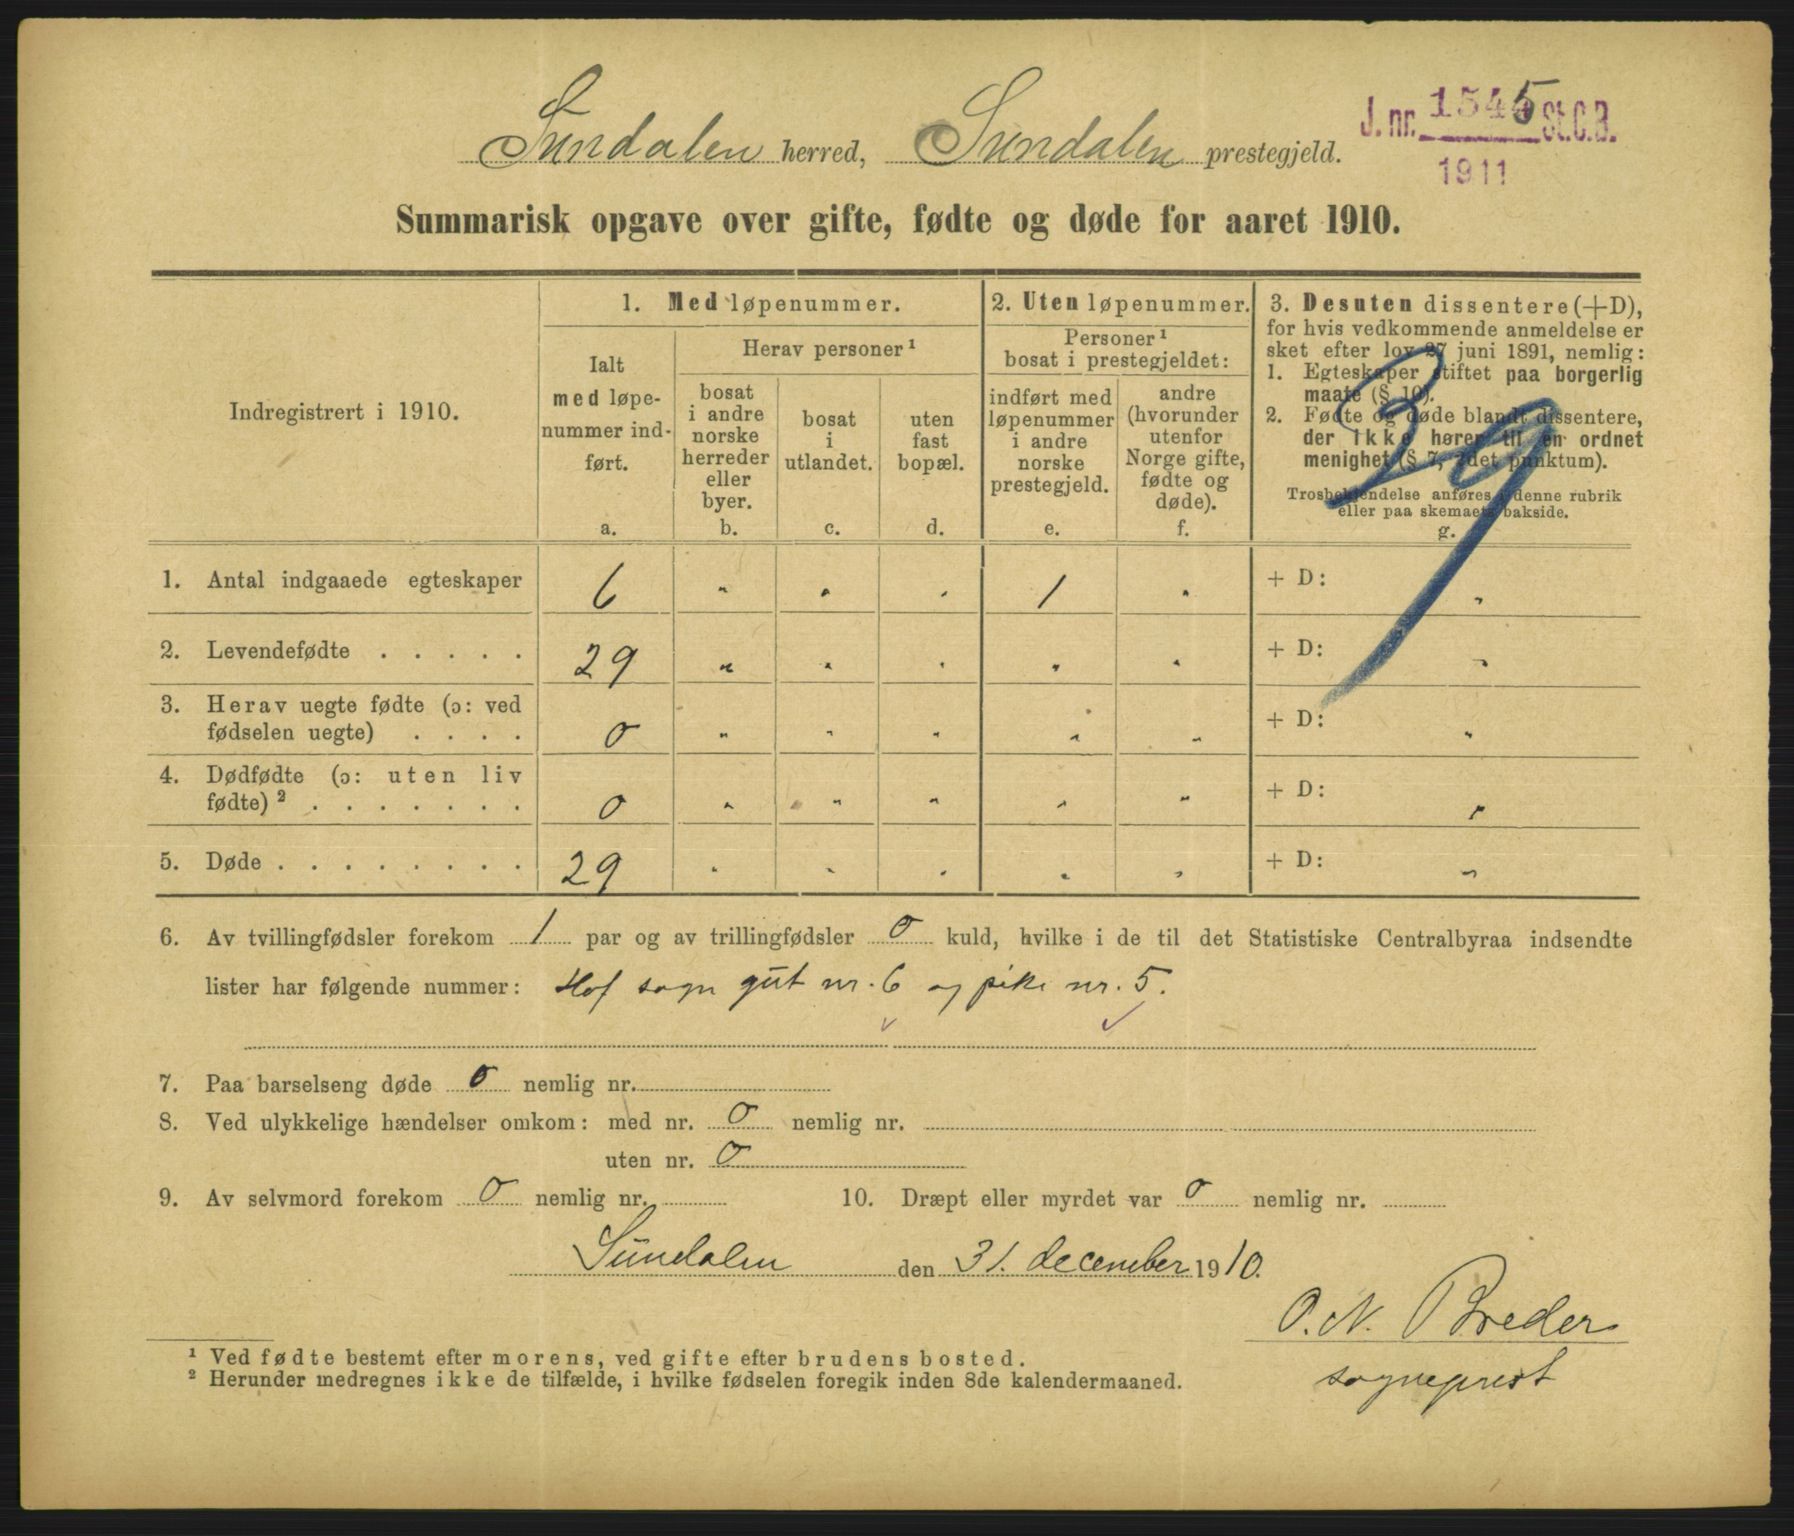 Sundalen herred, Sundalen prestegjeld.
J. nr. 1545 St.C.B.
1911
Summarisk opgave over gifte, fødte og døde for aaret 1910.
Indregistrert i 1910.
1. Med løpenummer.
Ialt
med løpe-
nummer ind-
ført.
a.
Herav personer¹
bosat
i andre
norske
herreder
eller
byer.
b.
bosat
i
utlandet.
c.
uten
fast
bopæl.
d.
2. Uten løpenummer.
Personer¹
bosat i prestegjeldet:
indført med
løpenummer
i andre
norske
prestegjeld.
e.
andre
(hvorunder
utenfor
Norge gifte,
fødte og
døde).
f.
3. Desuten dissentere (+D),
for hvis vedkommende anmeldelse er
sket efter lov 27 juni 1891, nemlig:
1. Egteskaper stiftet paa borgerlig
maate (§ 10).
2. Fødte og døde blandt dissentere,
der ikke hører til en ordnet
menighet (§ 7, 2det punktum).
Trosbekjendelse anføres i denne rubrik
eller paa skemaets bakside.
g.
29
1. Antal indgaaede egteskaper 6 " " " 1 " + D: "
2. Levendefødte . . . . . 29 " " " " " + D: "
3. Herav uegte fødte (ɔ: ved
fødselen uegte) . . . . 0 " " " " " + D: "
4. Dødfødte (ɔ: uten liv
fødte)² . . . . . . . 0 " " " " " + D: "
5. Døde . . . . . . . . 29 " " " " " + D: "
6. Av tvillingfødsler forekom 1 par og av trillingfødsler 0 kuld, hvilke i de til det Statistiske Centralbyraa indsendte
lister har følgende nummer: Hof sogn gut nr. 6 og pike nr. 5.
7. Paa barselseng døde 0 nemlig nr.
8. Ved ulykkelige hændelser omkom: med nr. 0 nemlig nr.
uten nr. 0
9. Av selvmord forekom 0 nemlig nr. 10. Dræpt eller myrdet var 0 nemlig nr.
Sundalen den 31. december 1910.
O. N. Breder
sogneprest
¹ Ved fødte bestemt efter morens, ved gifte efter brudens bosted.
² Herunder medregnes ikke de tilfælde, i hvilke fødselen foregik inden 8de kalendermaaned.